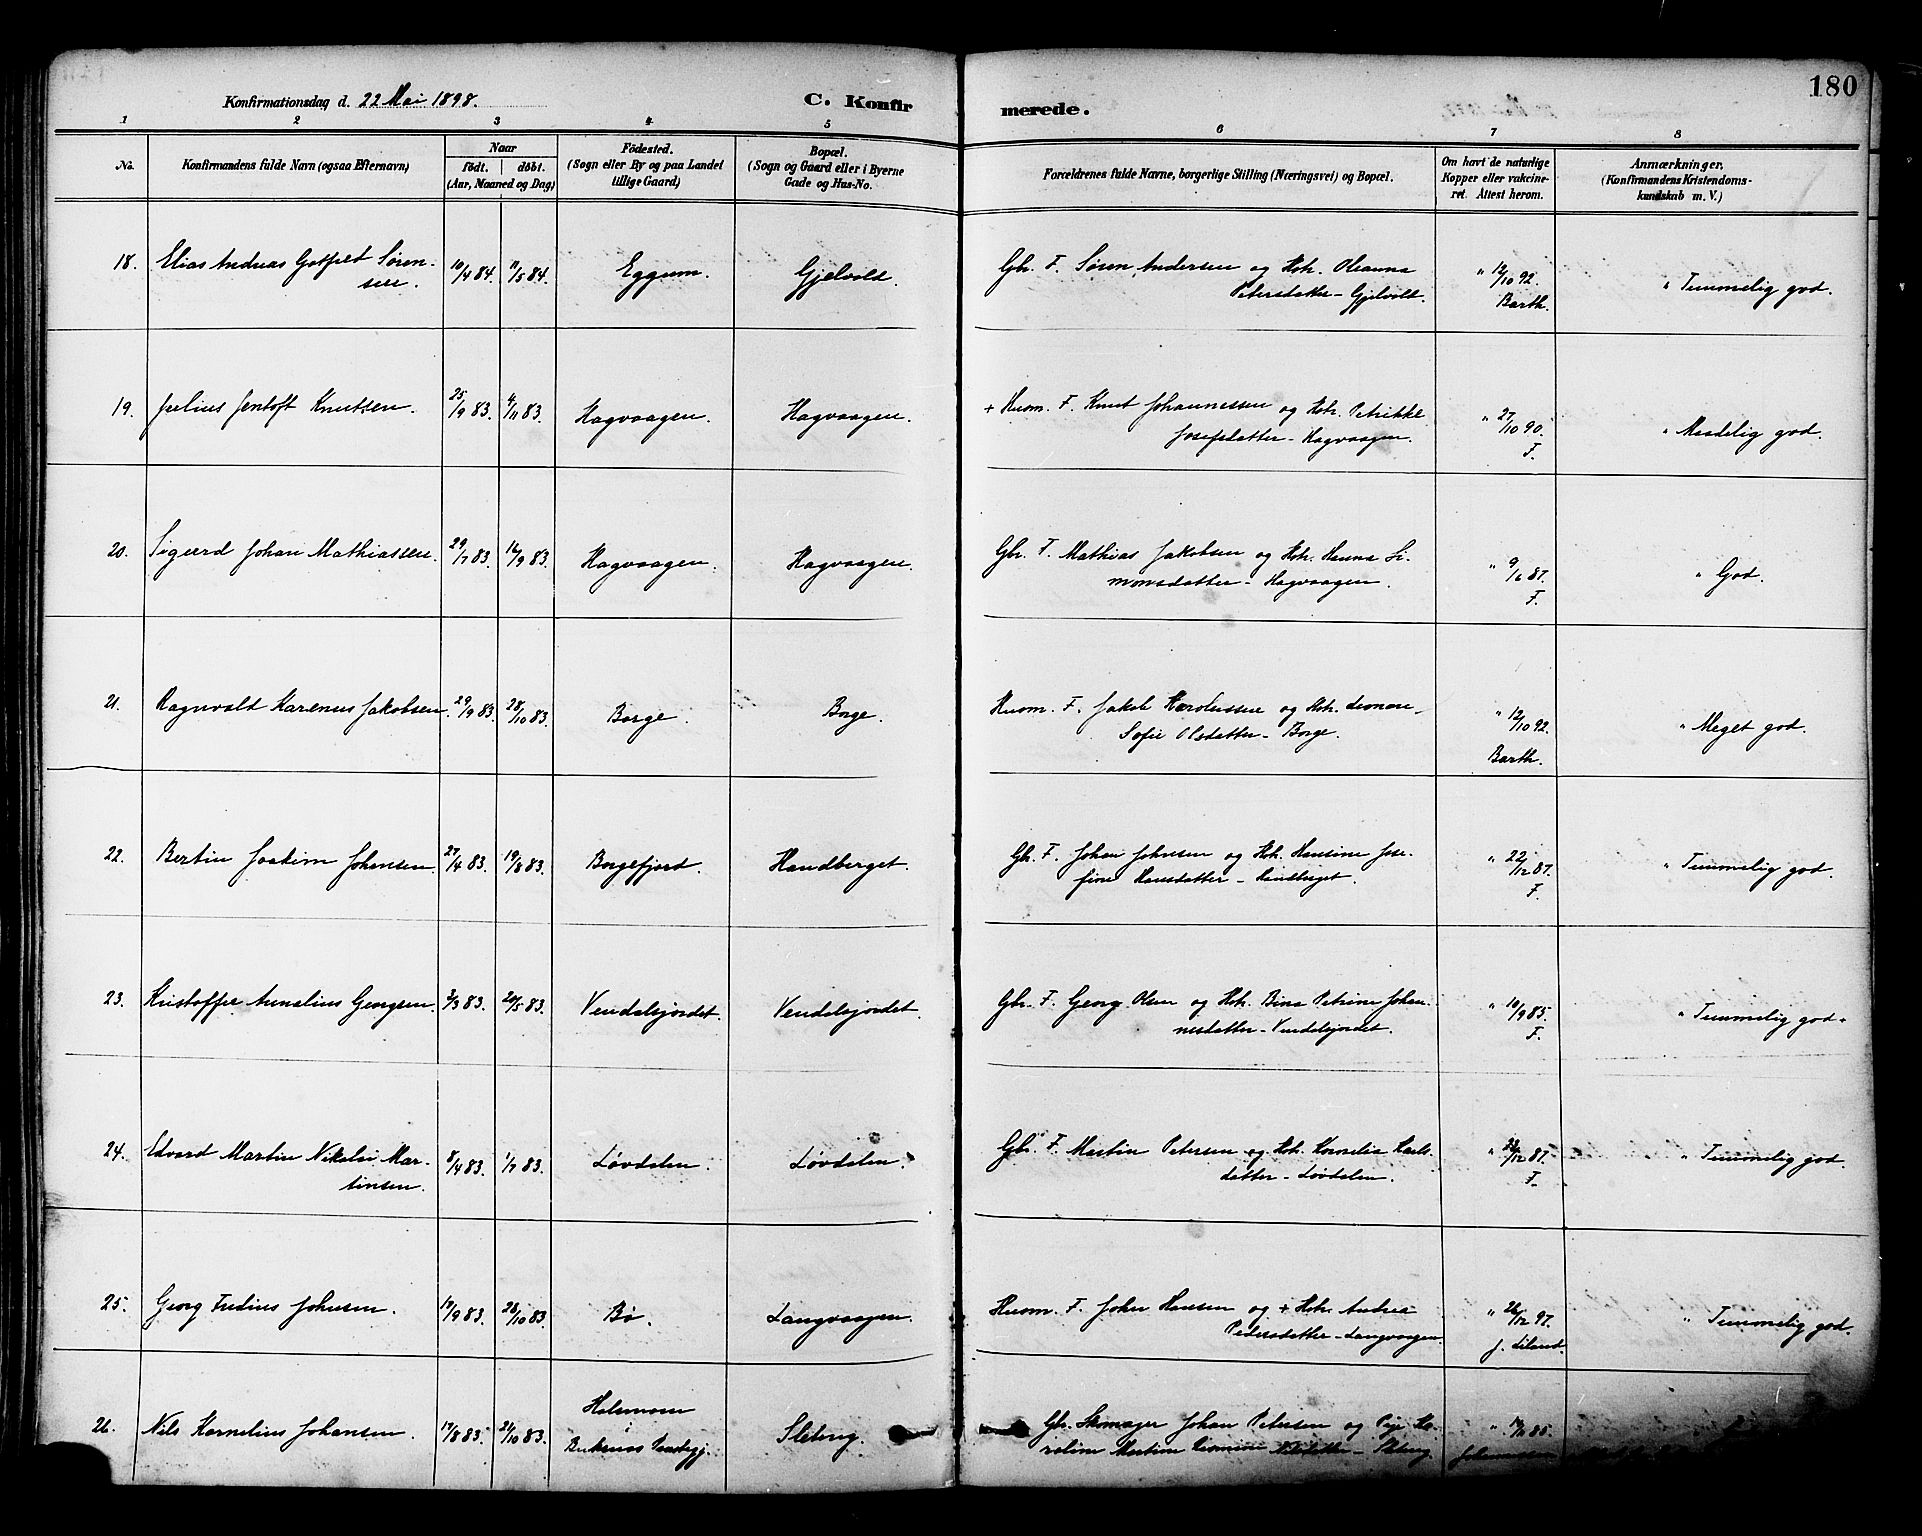 180
Konfirmationsdag d. 22 Mai 1898.
C. Konfirmerede.
1 2 3 4 5 6 7 8
No.
Konfirmandens fulde Navn (ogsaa Efternavn)
Naar
födt. döbt.
(Aar, Maaned og Dag)
Födested.
(Sogn eller By og paa Landet
tillige Gaard)
Bopæl.
(Sogn og Gaard eller i Byerne
Gade og Hus-No.
Forældrenes fulde Navne, borgerlige Stilling (Næringsvei) og Bopæl.
Om havt de naturlige
Kopper eller vakcine-
ret. Attest herom.
Anmærkninger.
(Konfirmandens Kristendoms-
kundskab m. V.)
18. Elias Andreas Gotfred Søren- 10/4 84 11/5 84. Eggum. Gjelvold. Gbr. F. Søren Andersen og Hstr. Oleanna " 14/10 92. " Temmelig god.
sen. Petersdatter - Gjelvold. Barth.
19. Julius Jentoft Knutsen. 25/9 83. 4/11 83. Hagvaagen. Hagvaagen. + Husm. F. Knut Johannessen og Hstr. Petrikke " 27/10 90. " Maadelig god.
Josefsdatter - Hagvaagen. F.
20. Sigurd Johan Mathiassen. 29/7 83. 16/9 83. Hagvaagen. Hagvaagen. Gbr. F. Mathias Jakobsen og Hstr. Hanna Si- " 9/6 87. " God.
monsdatter - Hagvaagen. F.
21. Ragnvald Karenus Jakobsen. 29/9 83. 28/10 83. Borge. Borge. Husm. F. Jakob Karolussen og Hstr. Leonore " 12/10 92. " Meget god.
Sofie Olsdatter - Borge. Barth.
22. Bertin Joakim Johansen. 27/4 83. 19/8 83. Borgefjord. Handberget. Gb. F. Johan Johnsen og Hstr. Hansine Jose- " 22/12 87. " Temmelig god.
fine Hansdatter - Handberget. F.
23. Kristoffer Annelius Georgsen. 2/3 83. 20/5 83. Vendalsjordet. Vendalsjordet. Gbr. F. Georg Olsen og Hstr. Bina Petrine Johan- " 10/9 85. " Temmelig god.
nesdatter - Vendalsjordet. F.
24. Edvard Martin Nikolai Mar- 8/4 83. 1/7 83. Løvdalen. Løvdalen. Gbr. F. Martin Petersen og Hstr. Kornelia Karls- " 22/12 87. " Temmelig god.
tinsen. datter - Løvdalen. F.
25. Georg Fredius Johnsen. 17/9 83. 28/10 83. Bø. Langvaagen. Husm. F. John Hansen og + Hstr. Andrea " 26/12 97. " Temmelig god.
Pedersdatter - Langvaagen J. Liland.
26. Nils Kornelius Johansen. 17/8 83. 21/10 83. Holsmoen Sleteng. Gbr. Skomager Johan Petersen og Pige Ka-
Buksnes roline Martine